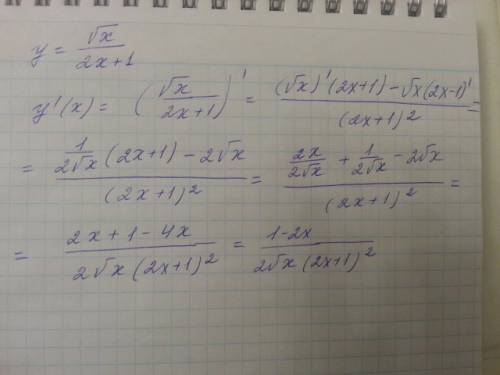 y = √x / (2x+1)
y'(x) = (√x / (2x+1))' = ((√x)'(2x+1) - √x(2x-1)') / (2x+1)² =
= (1/(2√x) (2x+1) - 2√x) / (2x+1)² = (2x/(2√x) + 1/(2√x) - 2√x) / (2x+1)² =
= (2x+1-4x) / (2√x (2x+1)²) = (1-2x) / (2√x (2x+1)²)